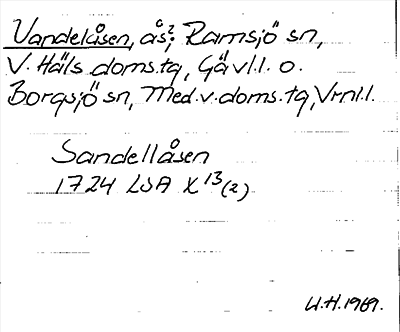 Vandelåsen, ås?, Ramsjö sn,
V. Häls doms.tg, Gävl.l. o.
Borgsjö sn, Med.v.doms.tg, Vrnl.l.
Sandellåsen
1724 LSA X 13(2)
W.H. 1969.